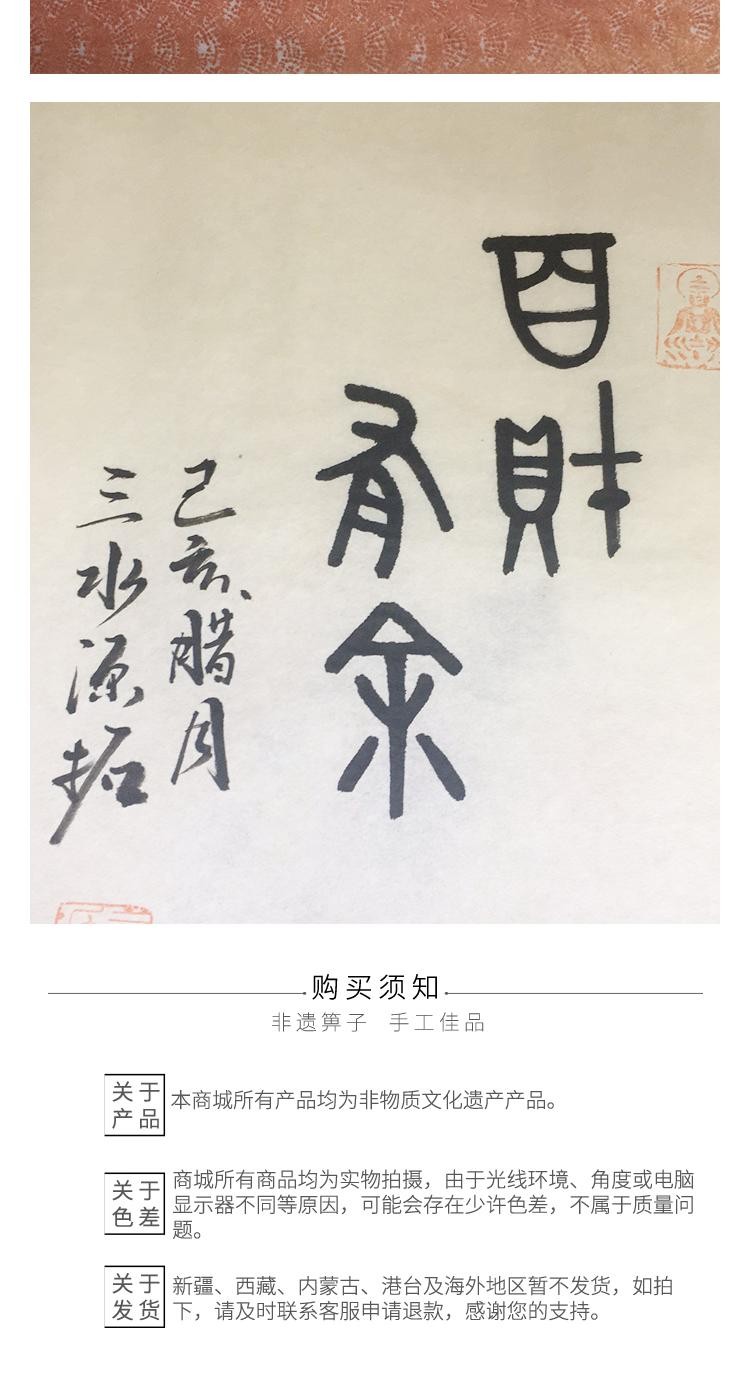 百財
有余
己亥腊月
三水源拓
购买须知
非遗箅子 手工佳品
关于
产品
本商城所有产品均为非物质文化遗产产品。
关于
色差
商城所有商品均为实物拍摄，由于光线环境、角度或电脑
显示器不同等原因，可能会存在少许色差，不属于质量问
题。
关于
发货
新疆、西藏、内蒙古、港台及海外地区暂不发货，如拍
下，请及时联系客服申请退款，感谢您的支持。